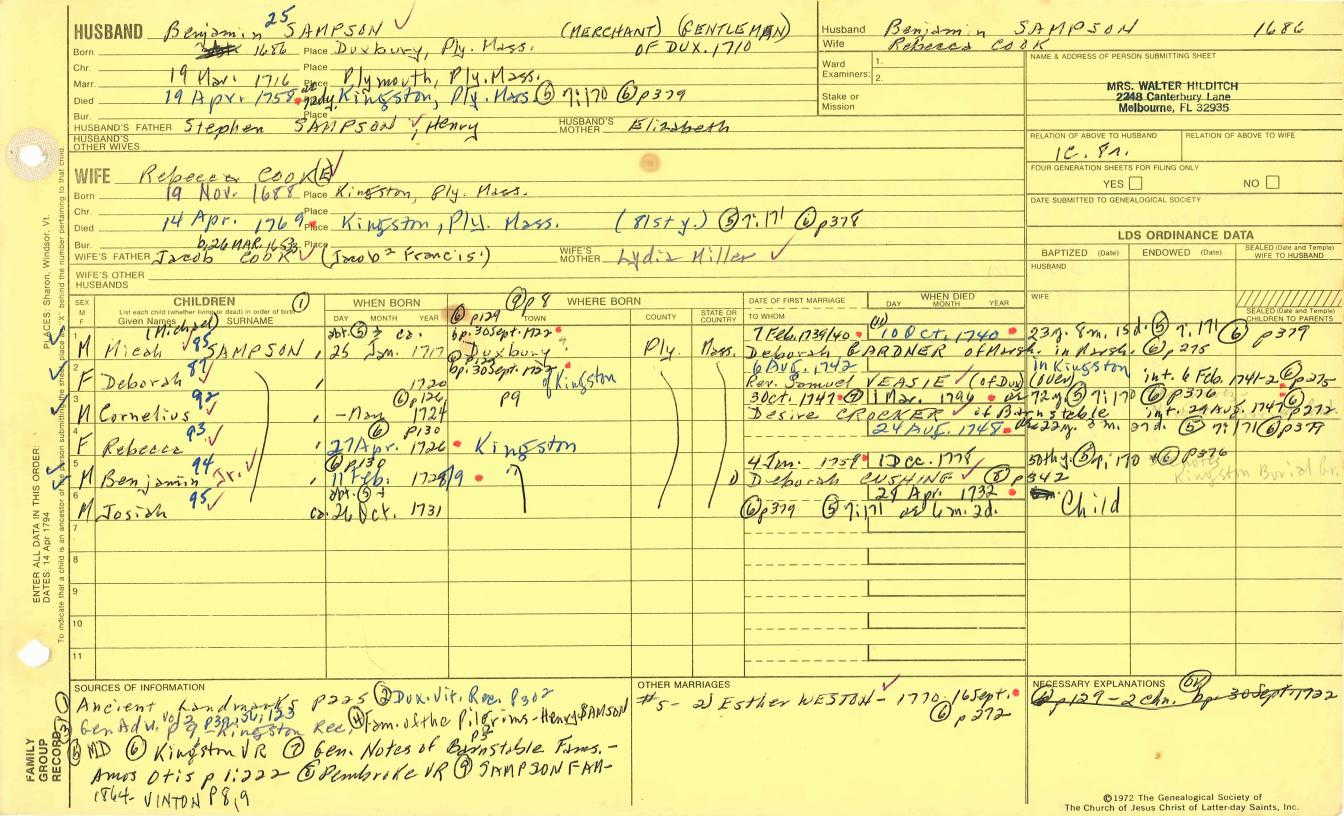 HUSBAND Benjamin 25 SAMPSON ✓ (MERCHANT) (GENTLEMAN)
Born 1686 Place Duxbury, Ply. Mass. OF DUX. 1710
Chr. Place
Marr. 19 Mar. 1716 Place Plymouth, Ply. Mass.
Died 19 Apr. 1758 Place Kingston, Ply. Mass. ⑤ 7:170 ⑥ p379
Bur. Place
HUSBAND'S FATHER Stephen SAMPSON ✓, Henry HUSBAND'S MOTHER Elizabeth
HUSBAND'S OTHER WIVES
Husband Benjamin SAMPSON 1686
Wife Rebecca COOK
Ward Examiners: 1. 2.
Stake or Mission
NAME & ADDRESS OF PERSON SUBMITTING SHEET
MRS. WALTER HILDITCH
2248 Canterbury Lane
Melbourne, FL 32935
RELATION OF ABOVE TO HUSBAND RELATION OF ABOVE TO WIFE
1C. 8r.
FOUR GENERATION SHEETS FOR FILING ONLY
YES NO
DATE SUBMITTED TO GENEALOGICAL SOCIETY
WIFE Rebecca COOK(E) ✓
Born 19 Nov. 1688 Place Kingston, Ply. Mass.
Chr. Place
Died 14 Apr. 1769 Place Kingston, Ply. Mass. (81st y.) ⑤ 7:171 ⑥ p378
Bur. Place
b. 26 MAR. 1653
WIFE'S FATHER Jacob COOK ✓ (Jacob² Francis¹) WIFE'S MOTHER Lydia Miller ✓
WIFE'S OTHER HUSBANDS
LDS ORDINANCE DATA
BAPTIZED (Date) ENDOWED (Date) SEALED (Date and Temple) WIFE TO HUSBAND
HUSBAND
WIFE
SEALED (Date and Temple) CHILDREN TO PARENTS
SEX M F CHILDREN ① List each child (whether living or dead) in order of birth Given Names SURNAME
WHEN BORN DAY MONTH YEAR
⑨ p8 WHERE BORN ⑥ p129 TOWN COUNTY STATE OR COUNTRY
DATE OF FIRST MARRIAGE TO WHOM
WHEN DIED DAY MONTH YEAR
1 M (Michael) Micah 85 ✓ SAMPSON, 25 Jan. 1717 bp. 30 Sept. 1722 Duxbury Ply. Mass. 7 Feb. 1739/40 10 Oct. 1740 23y. 8m. 15d. ⑤ 7:171 ⑥ p379
Deborah GARDNER of Marsh. in Marsh. ⑥ p275
2 F Deborah 87 ✓, 1720 bp. 30 Sept. 1722 of Kingston 6 Aug. 1742 in Kingston (over) int. 6 Feb. 1741-2 ⑥ p275
Rev. Samuel VEASIE ✓ (of Dux)
3 M Cornelius 92 ✓, ⑥ p126 – May 1724 p9 3 Oct. 1747 ⑦ 1 Mar. 1796 72y. ⑤ 7:170 ⑥ p376
Desire CROCKER ✓ of Barnstable int. 29 Aug. 1747 ⑥ p272
4 F Rebecca 93 ✓, ⑥ p130 27 Apr. 1726 Kingston 24 Aug. 1748 22y. 3m. 27d. ⑤ 7:171 ⑥ p379
5 M Benjamin Jr. 94 ✓, ⑥ p130 11 Feb. 1728/9 4 Jan. 1759 1 Dec. 1778 50thy. ⑤ 7:170 ⑥ p376
Deborah CUSHING ✓ ⑧ p342
6 M Josiah 95 ✓ abt. ⑤ ca. 26 Oct. 1731 29 Apr. 1732 Child
⑥ p379 ⑤ 7:171 as 6m. 3d.
7
8
9
10
11
SOURCES OF INFORMATION
① Ancient Landmarks p225 ② Dux. Vit. Rec. p302
③ Gen Adv. p9 – Kingston Rec. ④ Fam. of the Pilgrims – Henry SAMSON
⑤ MD ⑥ Kingston VR ⑦ Gen. Notes of Barnstable Fams. –
Amos Otis p 1:222 ⑧ Pembroke VR ⑨ SAMPSON FAM –
1864 – VINTON P 8, 9
OTHER MARRIAGES
#5 – 2) Esther WESTON ✓ – 1770. 16 Sept.
⑥ p272
NECESSARY EXPLANATIONS
⑥ p129 – 2 chn. bp. 30 Sept 1722
©1972 The Genealogical Society of
The Church of Jesus Christ of Latter-day Saints, Inc.
FAMILY GROUP RECORD
ENTER ALL DATA IN THIS ORDER:
DATES: 14 Apr 1794
PLACES: Sharon, Windsor, Vt.